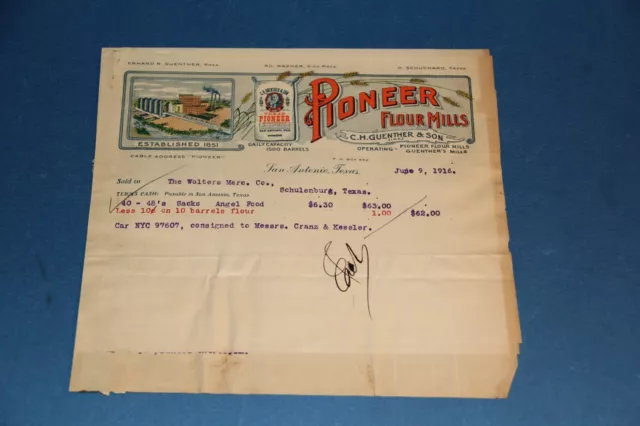 ERHARD R. GUENTHER, PRES.
AD. WAGNER, VICE-PRES.
PIONEER
FLOUR MILLS
C.H. GUENTHER & SON
ESTABLISHED 1851
DAILY CAPACITY
1500 BARRELS
OPERATING - PIONEER FLOUR MILLS
GUENTHER'S MILLS
CABLE ADDRESS "PIONEER"
San Antonio, Texas, June 9, 1916.
Sold to The Walters Merc. Co., Schulenburg, Texas.
TERMS CASH: Payable in San Antonio, Texas
40 - 48's Sacks Angel Food $6.30 $63.00
Less 10¢ on 10 barrels flour 1.00 $62.00
Car NYC 97607, consigned to Messrs. Cranz & Kessler.